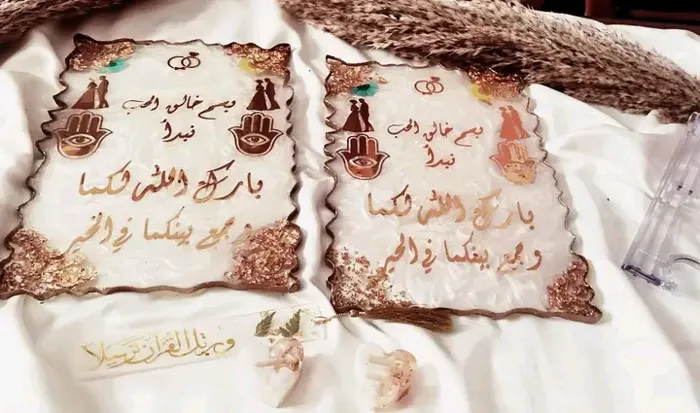 وبسم خالق الحب
نبدأ
بارك الله لكما
وجمع بينكما في الخير
وبسم خالق الحب
نبدأ
بارك الله لكما
وجمع بينكما في الخير
ورتل القرآن ترتيلا